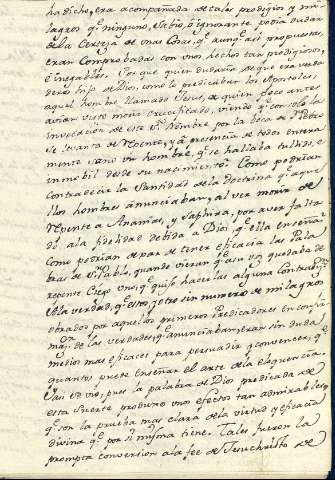 ha dicho, era acompañada de tales prodigios y mi-
lagros qe. ninguno, sabio, ò ignorante podia dudar
de la certeza de unas cosas, qe. aunqe. asi propuestas,
eran comprobadas con unos hechos tan prodigiosos,
è inegables. Por que quien dudaria de que era verda-
dero hijo de Dios, como lo predicaban los Apostoles,
aquel hombre llamado Jesus, a quien poco antes
avian visto morir crucificado, viendo qe. con solo la
invocacion de este SSmo. Nombre por la boca de Sn. Pedro
se levanta de repente, y à presencia de todos entera
mente sano un hombre, qe. se hallaba tullido, è
inmobil desde su nacimiento? Como podrian
contradecir la Santidad de la doctrina qe. aque
llos hombres anunciaban, al ver morir de
repente a Ananias, y Saphira, por aver falta
do à la fidelidad debida à Dios, qe. ella enseña?
Como podrian dexar de tener eficacia las Pala
bras de Sn. Pablo, quando vieran qe. a su voz quedaba de
repente ciego uno, qe. quiso hacer alguna contradicn.
à la verdad, qe. esto, y otro sin numero de milagros
obrados por aquellos primeros Predicadores en confir-
mon. de las verdades, qe. anunciaban, eran sin duda
medios mas eficaces para persuadir, y convencer, qe.
quantos puede enseñar el arte de la eloquencia.
Y asi se vio, pues la palabra de Dios predicada de
esta suerte produxo unos efectos tan admirables,
qe. son la prueba mas clara de la virtud, y eficacia
divina qe. por si misma tiene. Tales fueron la
prompta conversion a la fee de Jesuchristo de